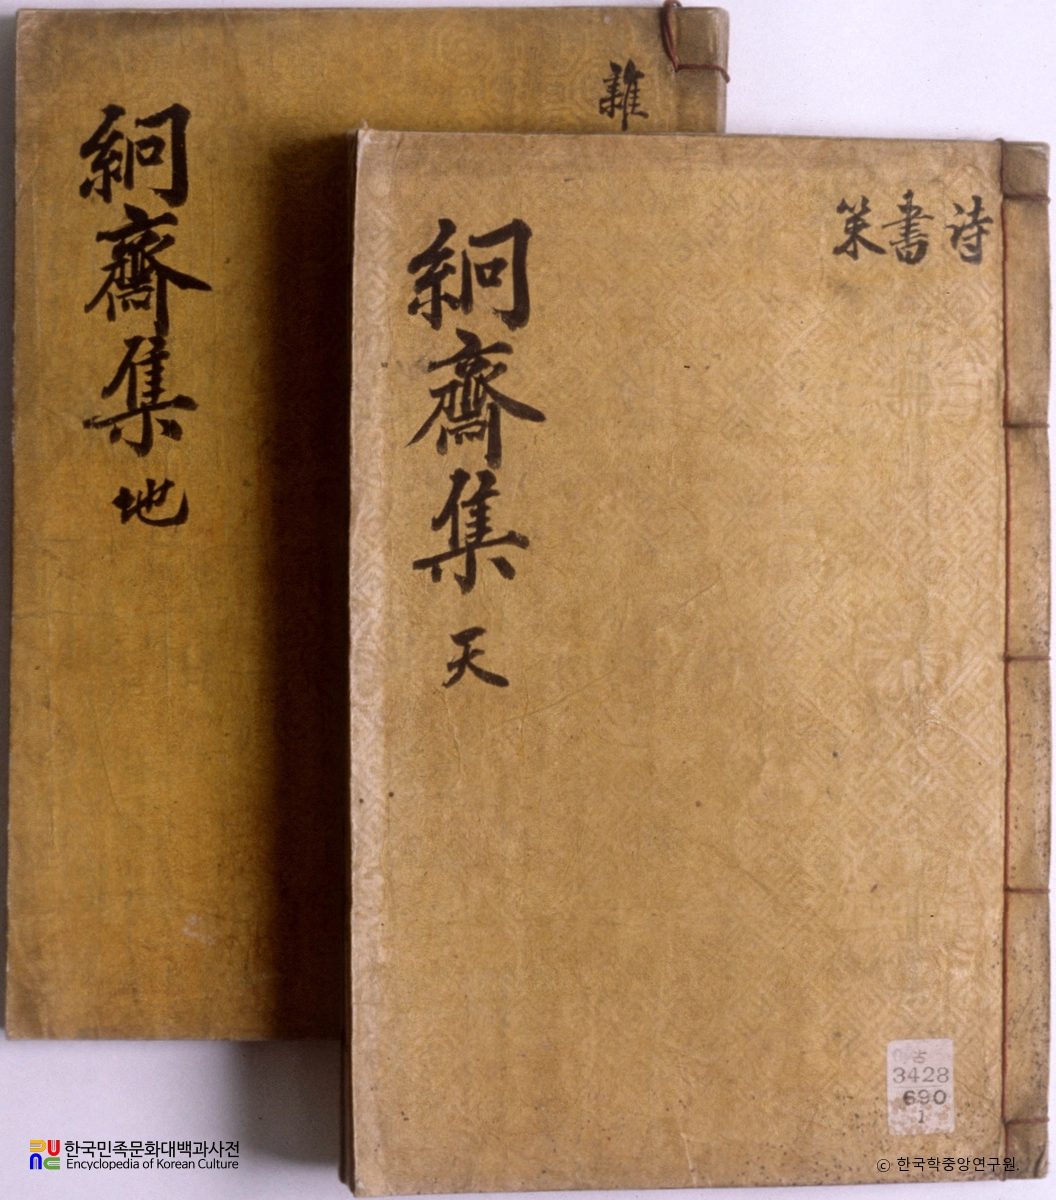 雜
絅齋集 地
詩 書 策
絅齋集 天
古
3428
690
1
한국민족문화대백과사전
Encyclopedia of Korean Culture
© 한국학중앙연구원.